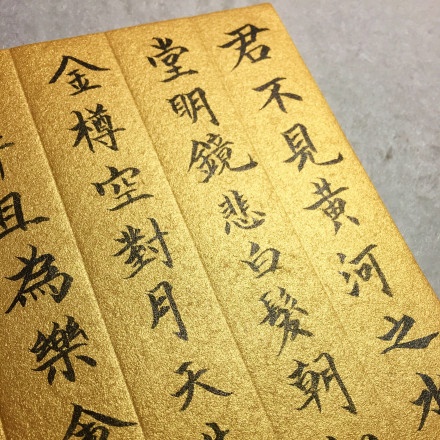 君不見黃河之水
堂明鏡悲白髮朝
金樽空對月天
且為樂